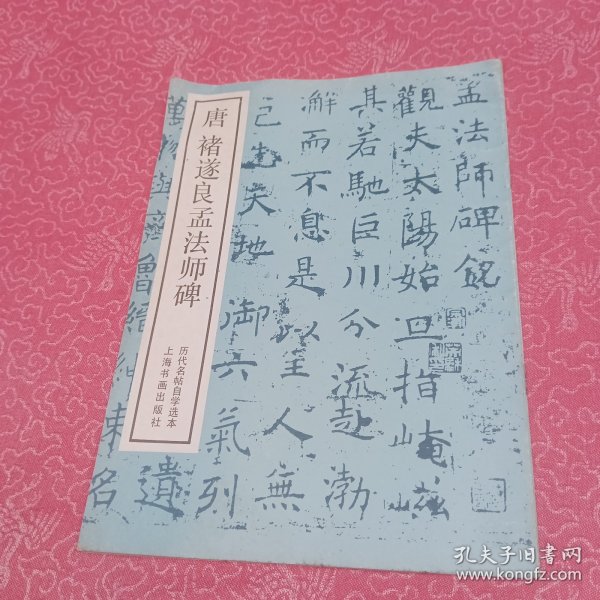 唐 褚遂良孟法师碑
历代名帖自学选本
上海书画出版社
孟法師碑銘
觀夫太陽始迴指崦嵫
其若馳巨川分流赴渤
澥而不息是以至人無
己先天地御六氣列
萬物與齊魯經
遺
名
孔夫子旧书网
www.kongfz.com